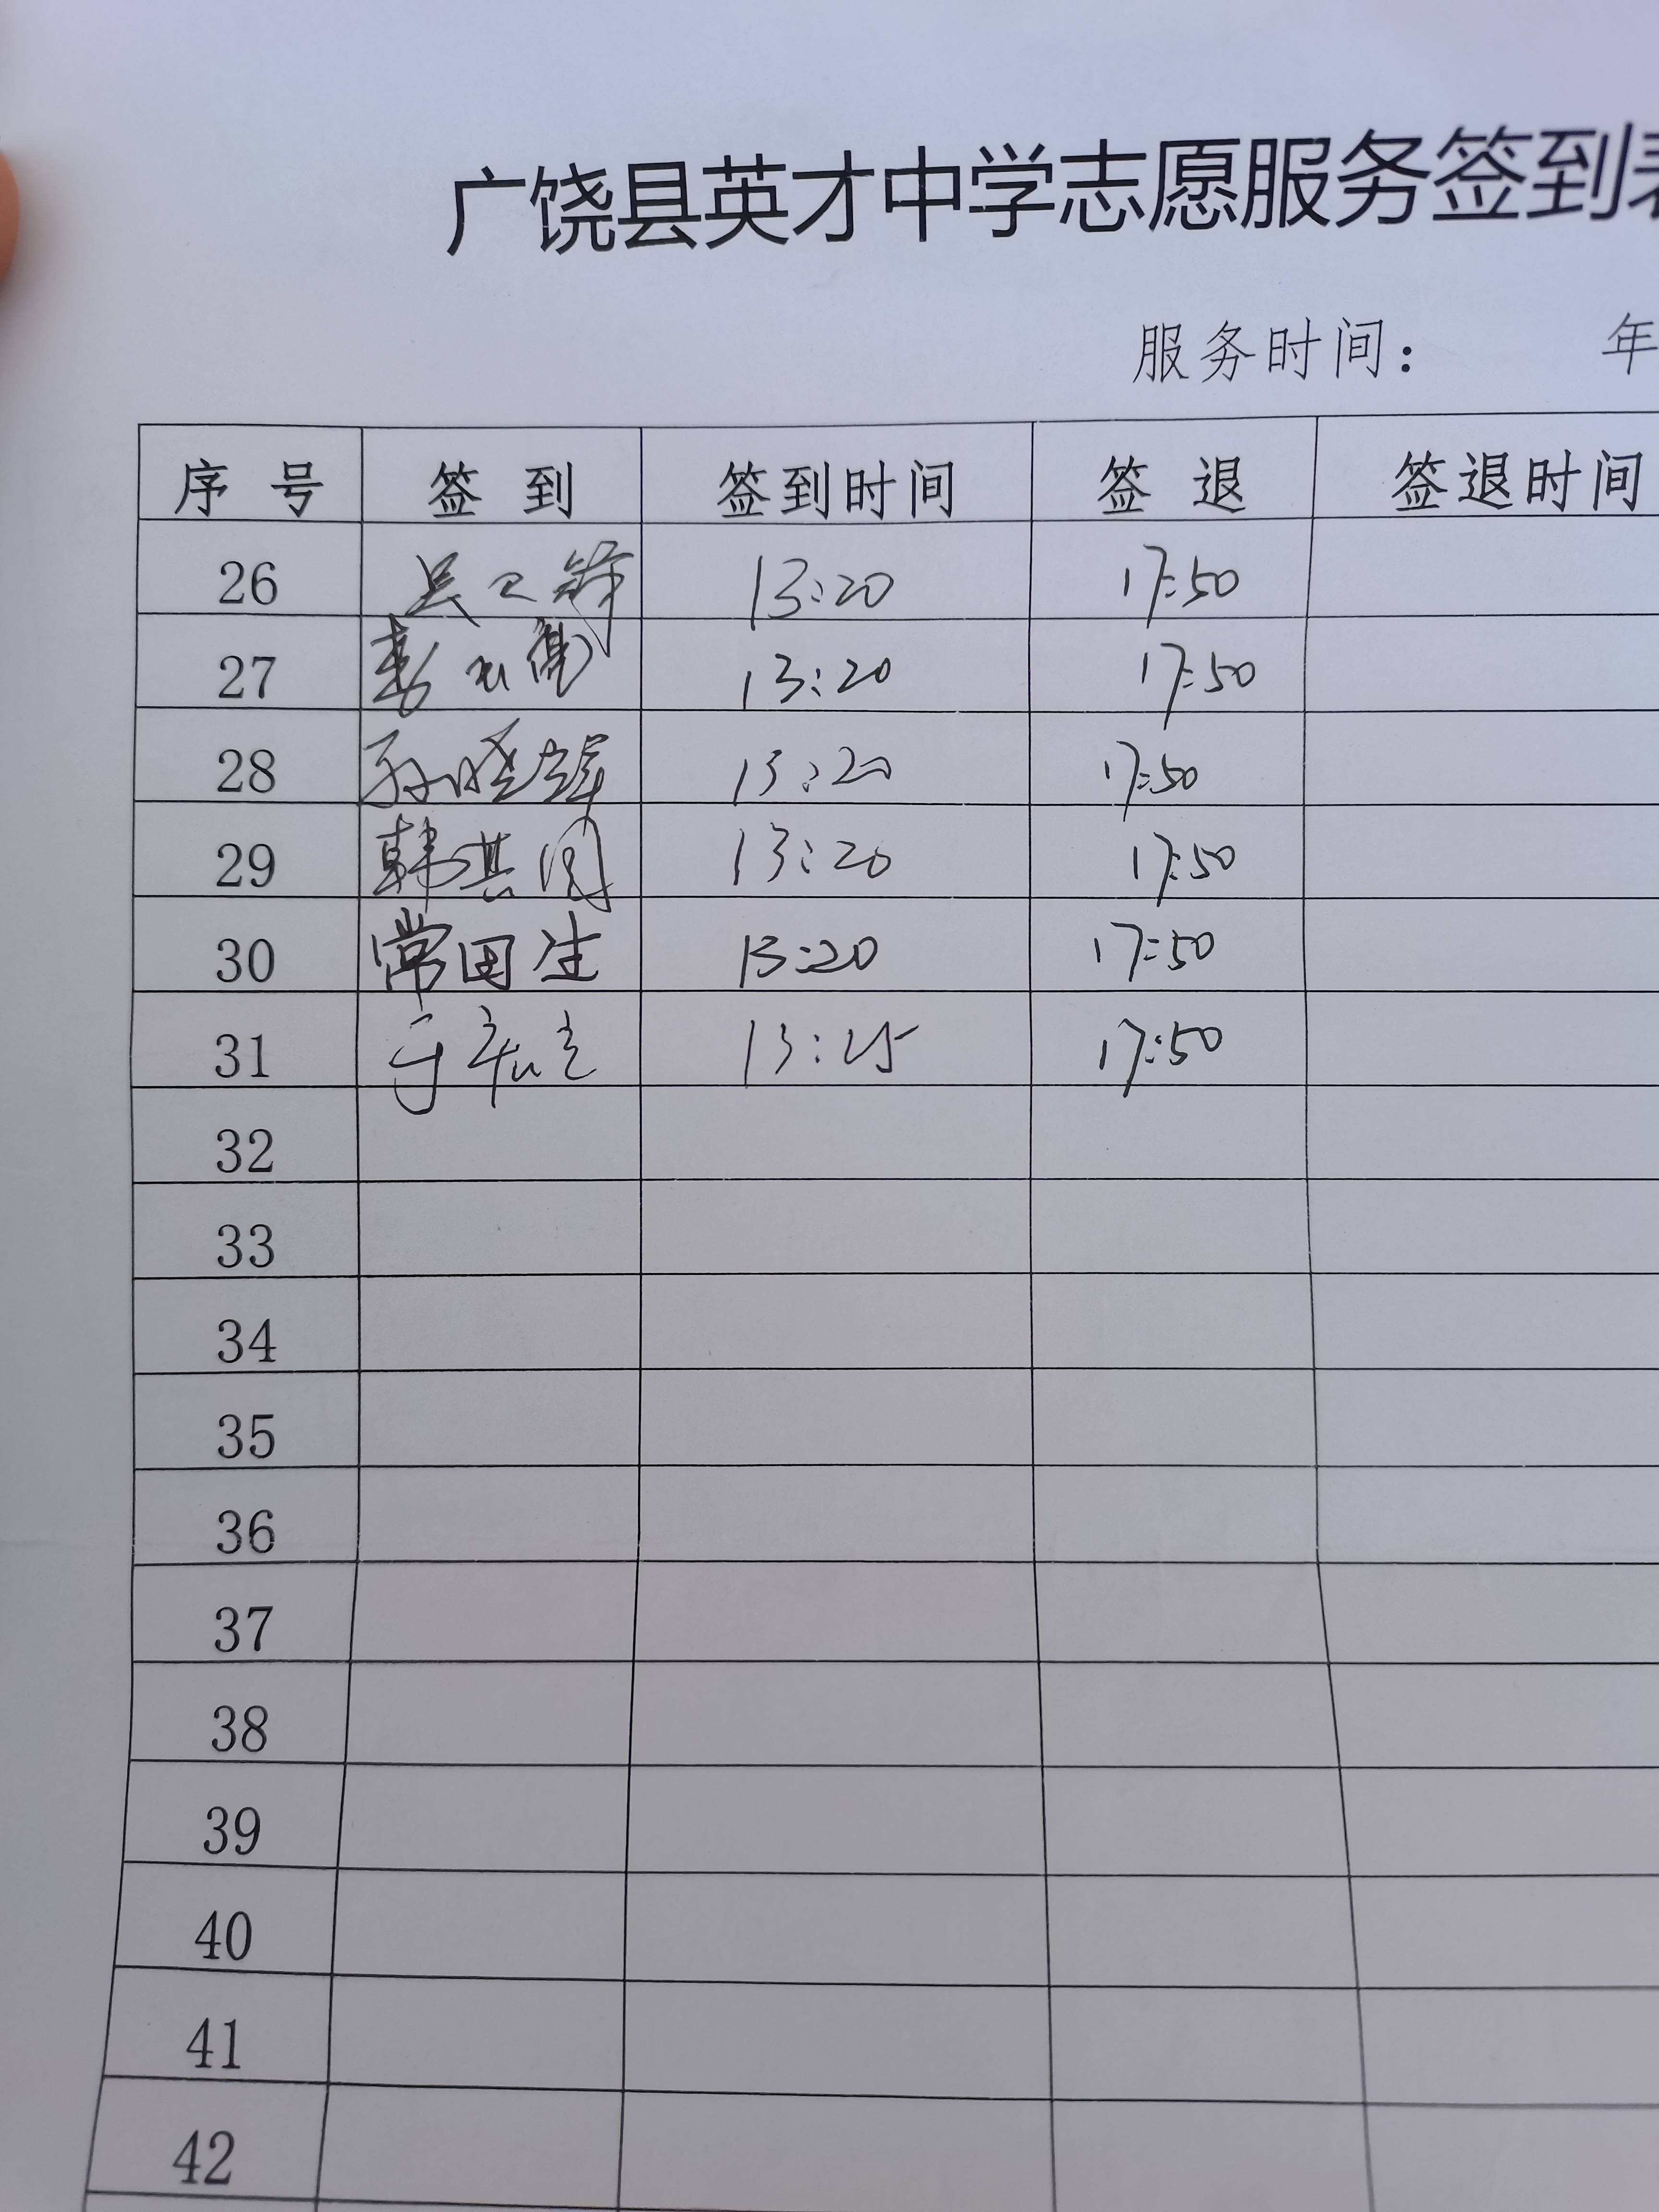 广饶县英才中学志愿服务签到表
服务时间： 年
序 号 签 到 签到时间 签 退 签退时间
26 13:20 17:50
27 13:20 17:50
28 孙晓 13:20 17:50
29 韩其 13:20 17:50
30 常田生 13:20 17:50
31 于 13:25 17:50
32
33
34
35
36
37
38
39
40
41
42